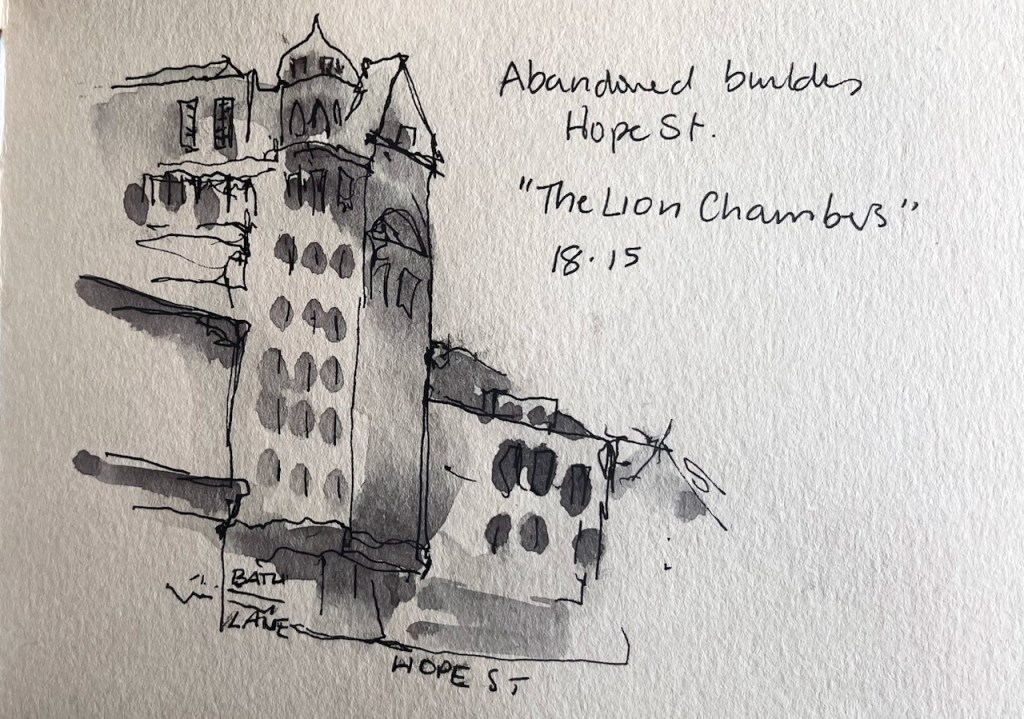 Abandoned buildes
Hope St.
"The Lion Chambers"
18.15
BATH
LANE
HOPE ST